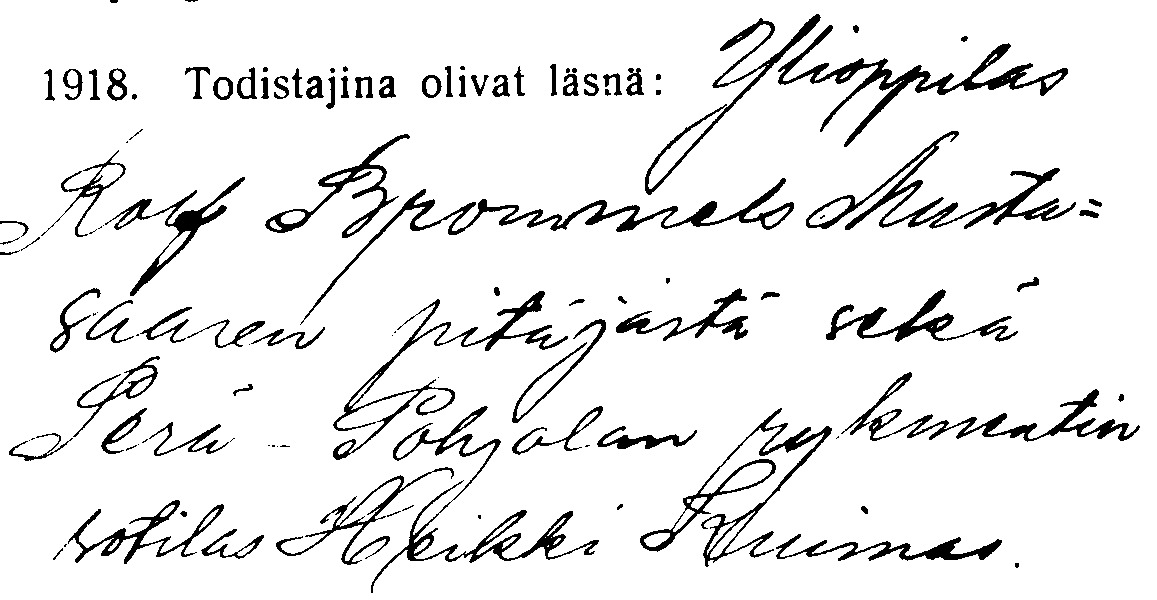 1918. Todistajina olivat läsnä: Ylioppilas
Rolf Brommels Musta=
saaren pitäjästä sekä
Perä-Pohjolan rykmentin
sotilas Heikki Kuimas.